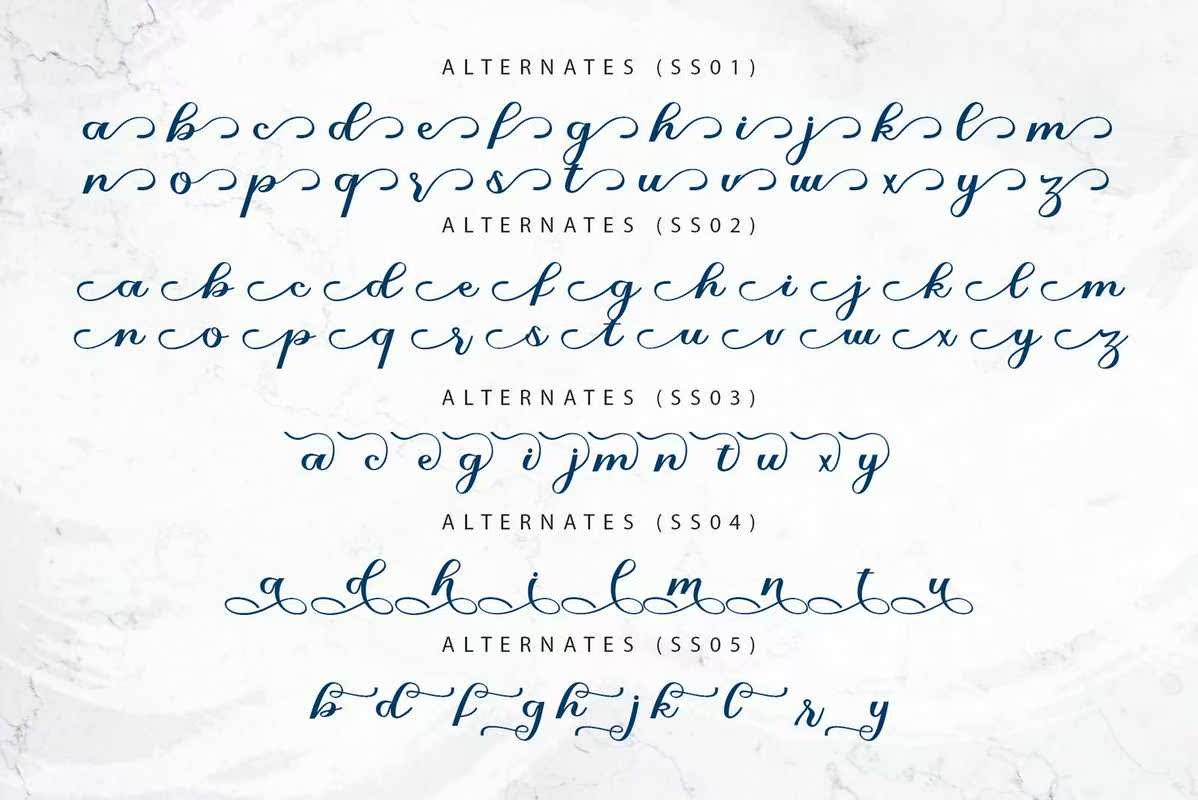 ALTERNATES (SS01)
a b c d e f g h i j k l m
n o p q r s t u v w x y z
ALTERNATES (SS02)
a b c d e f g h i j k l m
n o p q r s t u v w x y z
ALTERNATES (SS03)
a c e g i j m n t u x y
ALTERNATES (SS04)
a d h i l m n t u
ALTERNATES (SS05)
b d f g h j k l r y